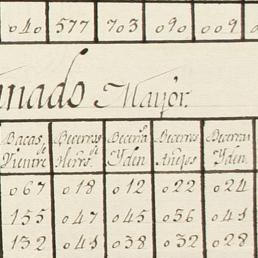 040 577 703 090 009
inado Mayor.
Bacas de Vientre Becerros de Hierro. Becerras Yden Becerros Añejos Becerras Yden.
067 018 012 022 024
155 047 045 056 041
132 041 038 032 028